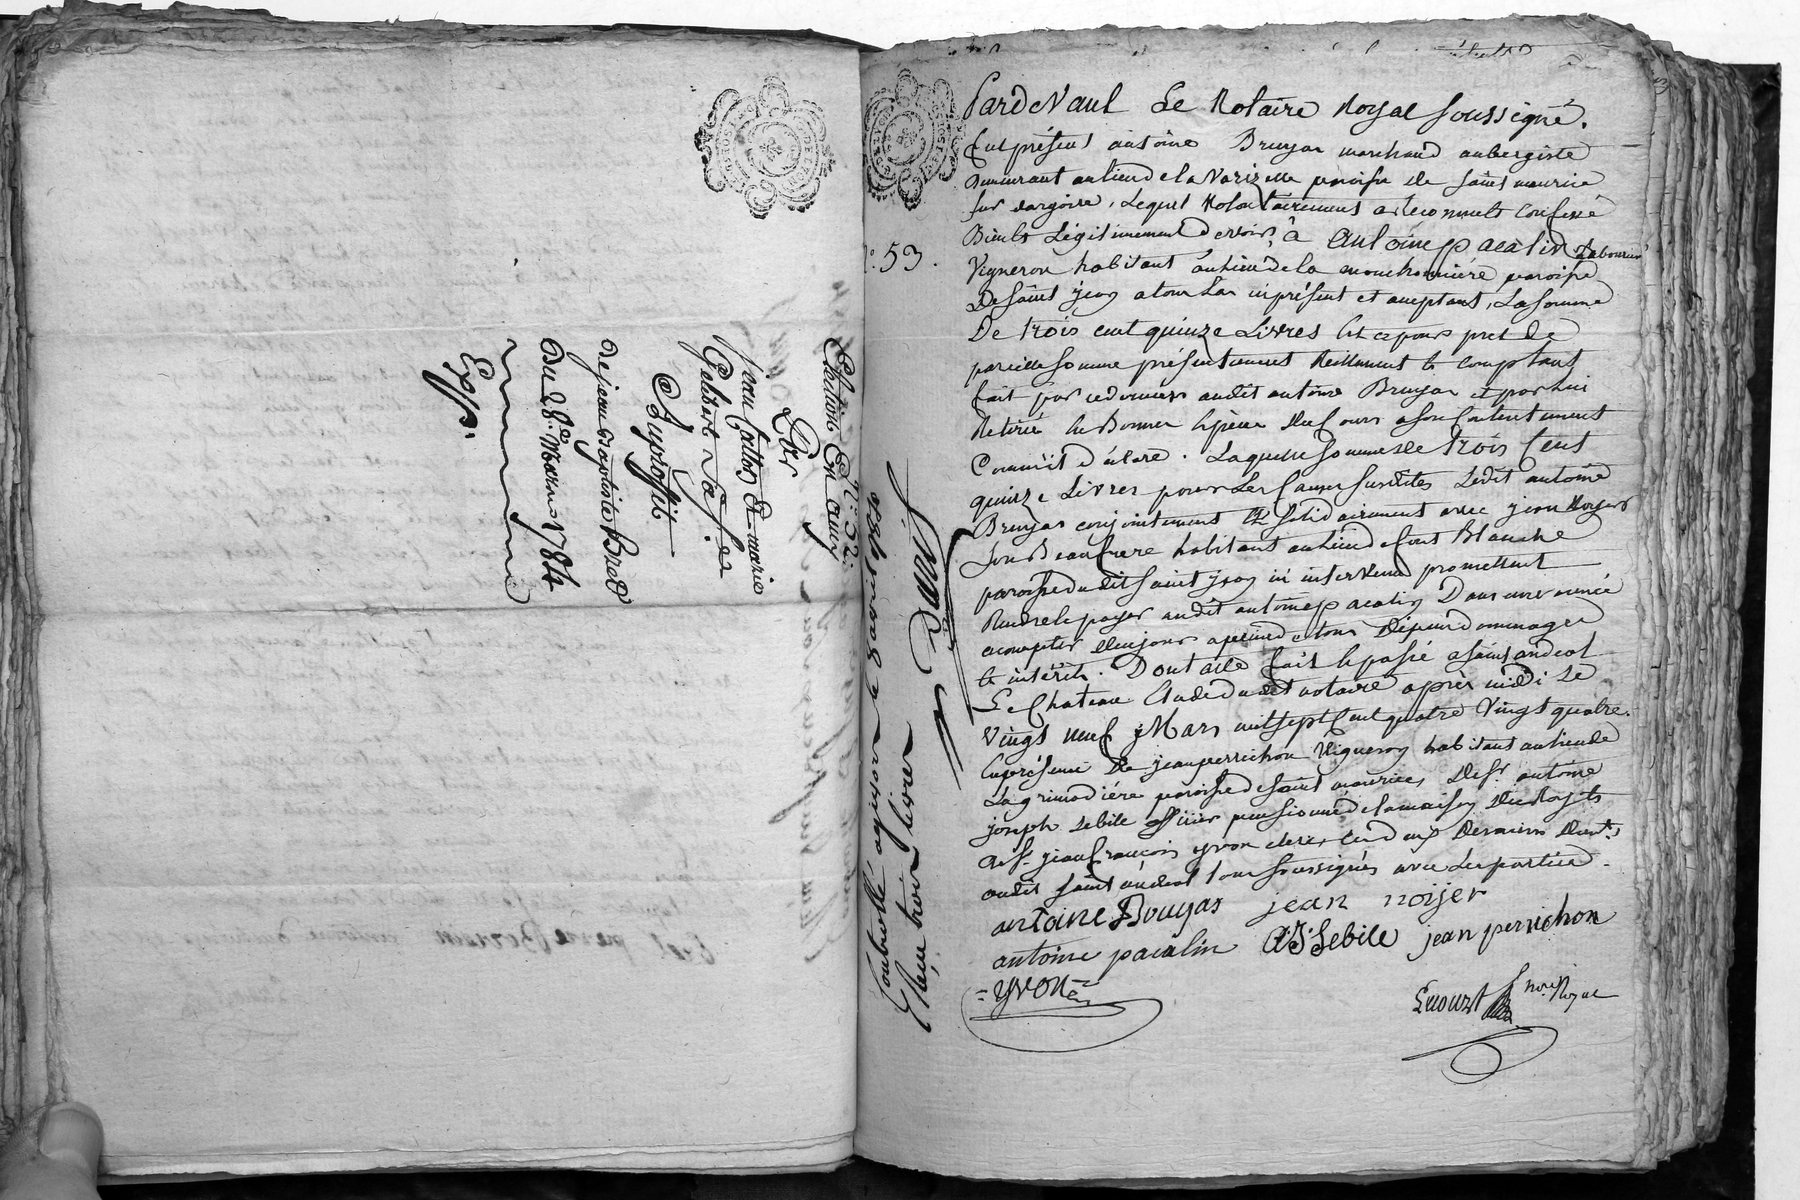 N.° 52.
Election En amy
Par
jean Caillot et marie
Gelibert sa fe
Auproffit
De jean Baptiste Bred
Du 28e. Mars 1784
Exp.
n.° 53.
Controllé a givors le 8 avril 1784
Reçu trois livres
Pardevant Le Notaire Royal soussigné.
fut présent antoine Bruyas marchand aubergiste
demeurant au lieu de la Varizelle paroisse de saint maurice
sur dargoire, Lequel Volontairement a Reconnu et confessé
Bien et Légitimement devoir, à Antoine pacalin Laboureur
Vigneron habitant au lieu de la mouchonnière paroisse
De saint jean a toulas ici présent et acceptant, La somme
De trois cent quinze Livres Et ce pour pret de
pareille somme présentement Réellement et comptant
fait par ce dernier audit antoine Bruyas et par lui
Retirée En Bonnes Espèces de cours a son Contentement
Comme il déclare. Laquelle somme de trois Cent
quinze Livres pour Les Causes susdites Ledit antoine
Bruyas conjointement et solidairement avec jean Noyer
son Beaufrere habitant au lieu de font Blanche
paroisse dudit saint jean ici intervenu promettent
Rendre et payer audit antoine pacalin Dans une année
a compter de ce jour a peine de tous Dépens dommages
et intérêts. Dont acte fait et passé a saint andeol
Le Chateau Etude dudit notaire après midi Le
Vingt neuf Mars mil sept Cent quatre Vingt quatre.
En présence de jean perrichon Vigneron habitant au lieu de
La grimodiére paroisse de saint maurice, de sr. antoine
joseph Sebile officier pensionné de la maison du Roy et
de sr. jean françois yvon clerc, Ces deux derniers demts.
audit saint andeol tous soussignés avec Les parties.
antoine Bruyas jean noijer
antoine pacalin AJSebile jean perrichon
= yvon =
Enouzt nore. Royal